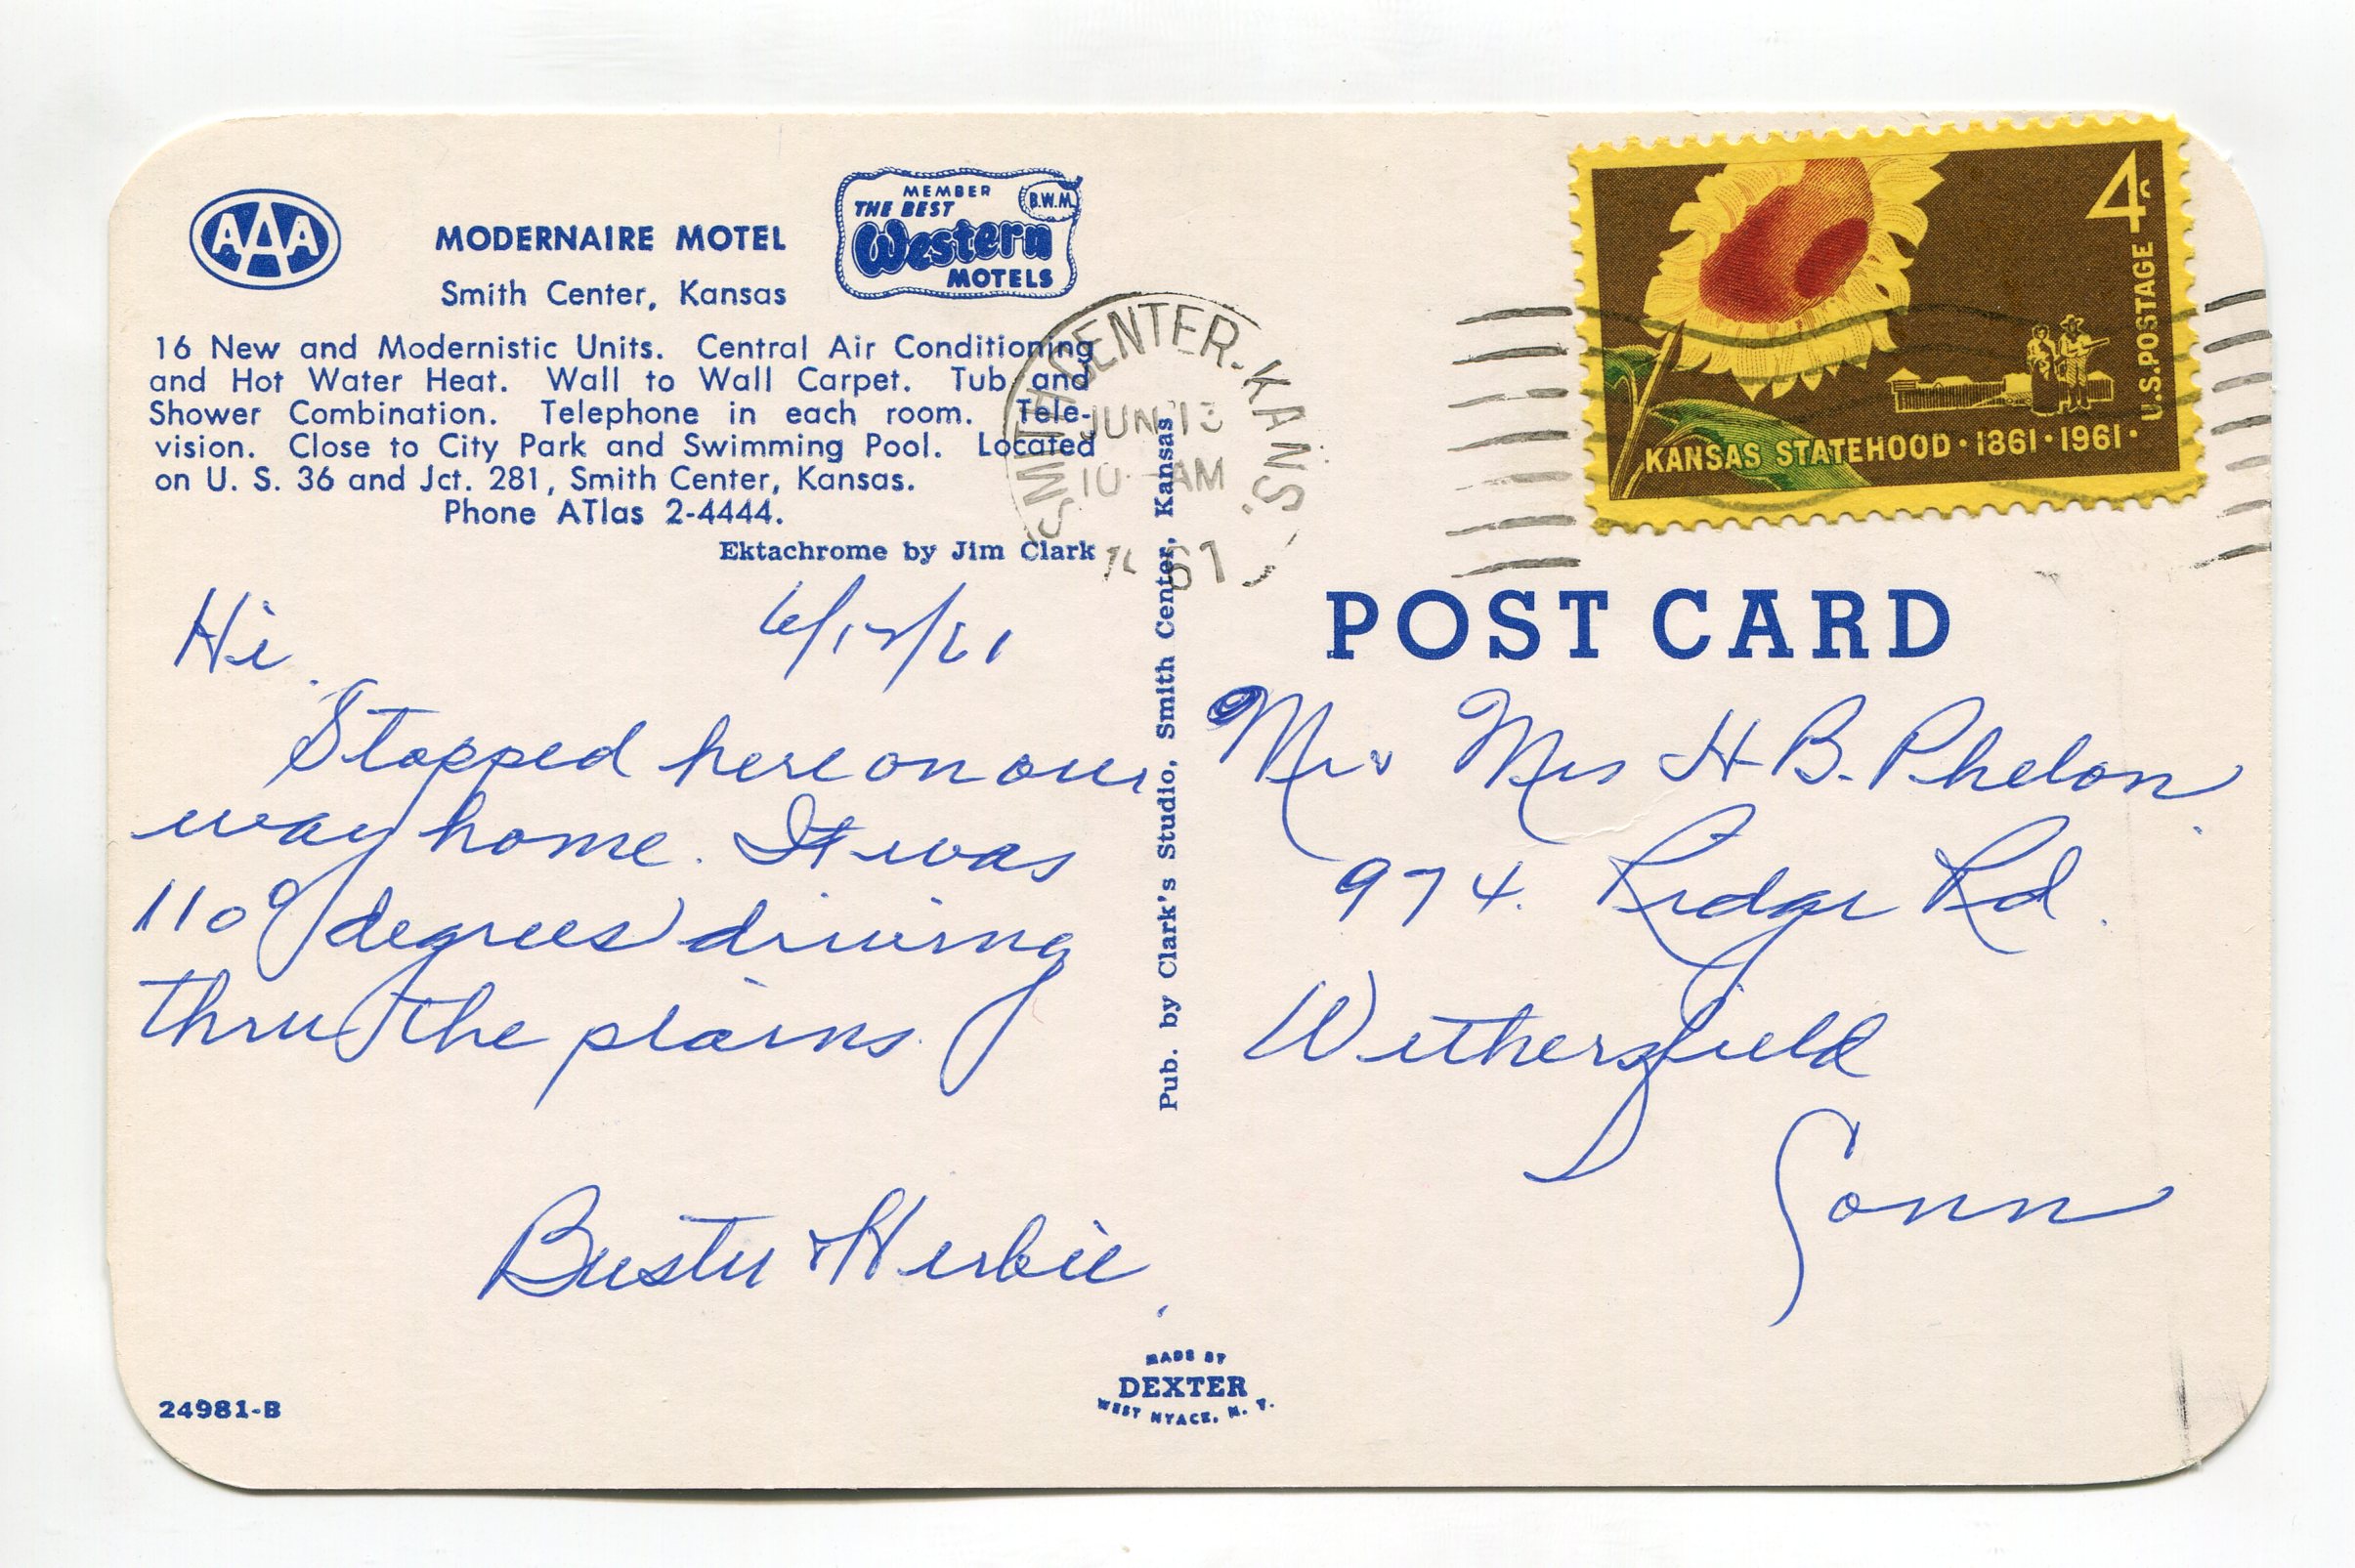 AAA
MODERNAIRE MOTEL
Smith Center, Kansas
MEMBER
THE BEST
B.W.M.
Western
MOTELS
16 New and Modernistic Units. Central Air Conditioning
and Hot Water Heat. Wall to Wall Carpet. Tub and
Shower Combination. Telephone in each room. Tele-
vision. Close to City Park and Swimming Pool. Located
on U. S. 36 and Jct. 281, Smith Center, Kansas.
Phone ATlas 2-4444.
Ektachrome by Jim Clark
Hi
6/12/61
Stopped here on our
way home. It was
110° degrees driving
thru the plains.
Buster & Herbie
24981-B
Pub. by Clark's Studio, Smith Center, Kansas
MADE BY
DEXTER
WEST NYACK, N. Y.
SMITH CENTER, KANS.
JUN 13
10 AM
1961
4¢
U.S. POSTAGE
KANSAS STATEHOOD · 1861 · 1961 ·
POST CARD
Mr & Mrs H B. Phelon
974 Ridge Rd.
Wethersfield
Conn